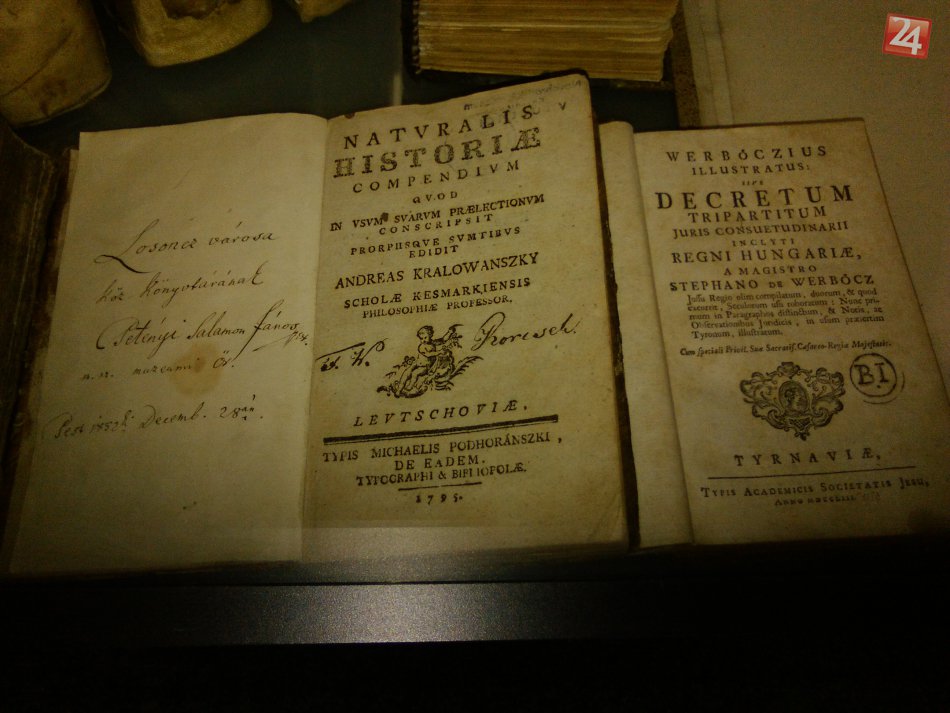 Losoncz városa
köz könyvtárának
Petényi Salamon János
n. n. muzeumi őr.
Pest 1852 Decemb. 28án
NATVRALIS
HISTORIÆ
COMPENDIVM
QVOD
IN VSVM SVARVM PRÆLECTIONVM
CONSCRIPSIT
PRORPIISQVE SVMTIBVS
EDIDIT
ANDREAS KRALOWANSZKY
SCHOLÆ KESMARKIENSIS
PHILOSOPHIÆ PROFESSOR,
LEVTSCHOVIÆ,
TYPIS MICHAELIS PODHORÁNSZKI,
DE EADEM.
TYPOGRAPHI & BIBLIOPOLÆ.
1795.
WERBŐCZIUS
ILLUSTRATUS:
SIVE
DECRETUM
TRIPARTITUM
JURIS CONSUETUDINARII
INCLYTI
REGNI HUNGARIÆ,
A MAGISTRO
STEPHANO DE WERBŐCZ
Jussu Regio olim compilatum, duorum, & quod
excurrit, Seculorum usu roboratum: Nunc pri-
mum in Paragraphos distinctum, & Notis, ac
Observationibus Juridicis, in usum præsertim
Tyronum, illustratum.
Cum speciali Privil. Suæ Sacratiss. Cæsareo-Regiæ Majestatis.
BI
TYRNAVIÆ,
TYPIS ACADEMICIS SOCIETATIS JESU,
ANNO
24